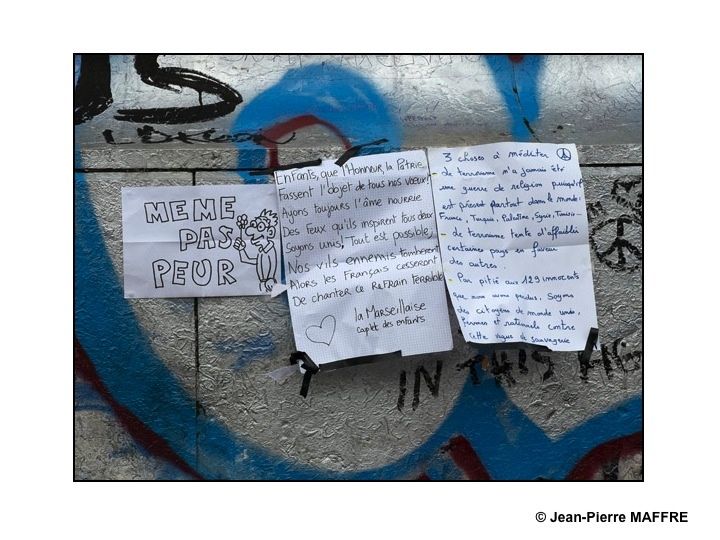 MEME
PAS
PEUR
Enfants, que l'Honneur, la Patrie
Fassent l'objet de tous nos vœux!
Ayons toujours l'âme nourrie
Des Feux qu'ils inspirent tous deux
Soyons unis, Tout est possible,
Nos vils ennemis tomberont
Alors les Français cesseront
De chanter ce Refrain terrible
la Marseillaise
couplet des enfants
3 choses à méditer
- de terrorisme n'a jamais été
une guerre de religion puisqu'il
est présent partout dans le monde:
France, Turquie, Palestine, Syrie, Tunisie..
- de terrorisme tente d'affaiblir
certains pays en faveur
des autres.
- Par pitié aux 129 innocents
que nous avons perdus, Soyons
des citoyens du monde unis,
fermes et rationnels contre
cette vague de sauvagerie
IN THIS
© Jean-Pierre MAFFRE